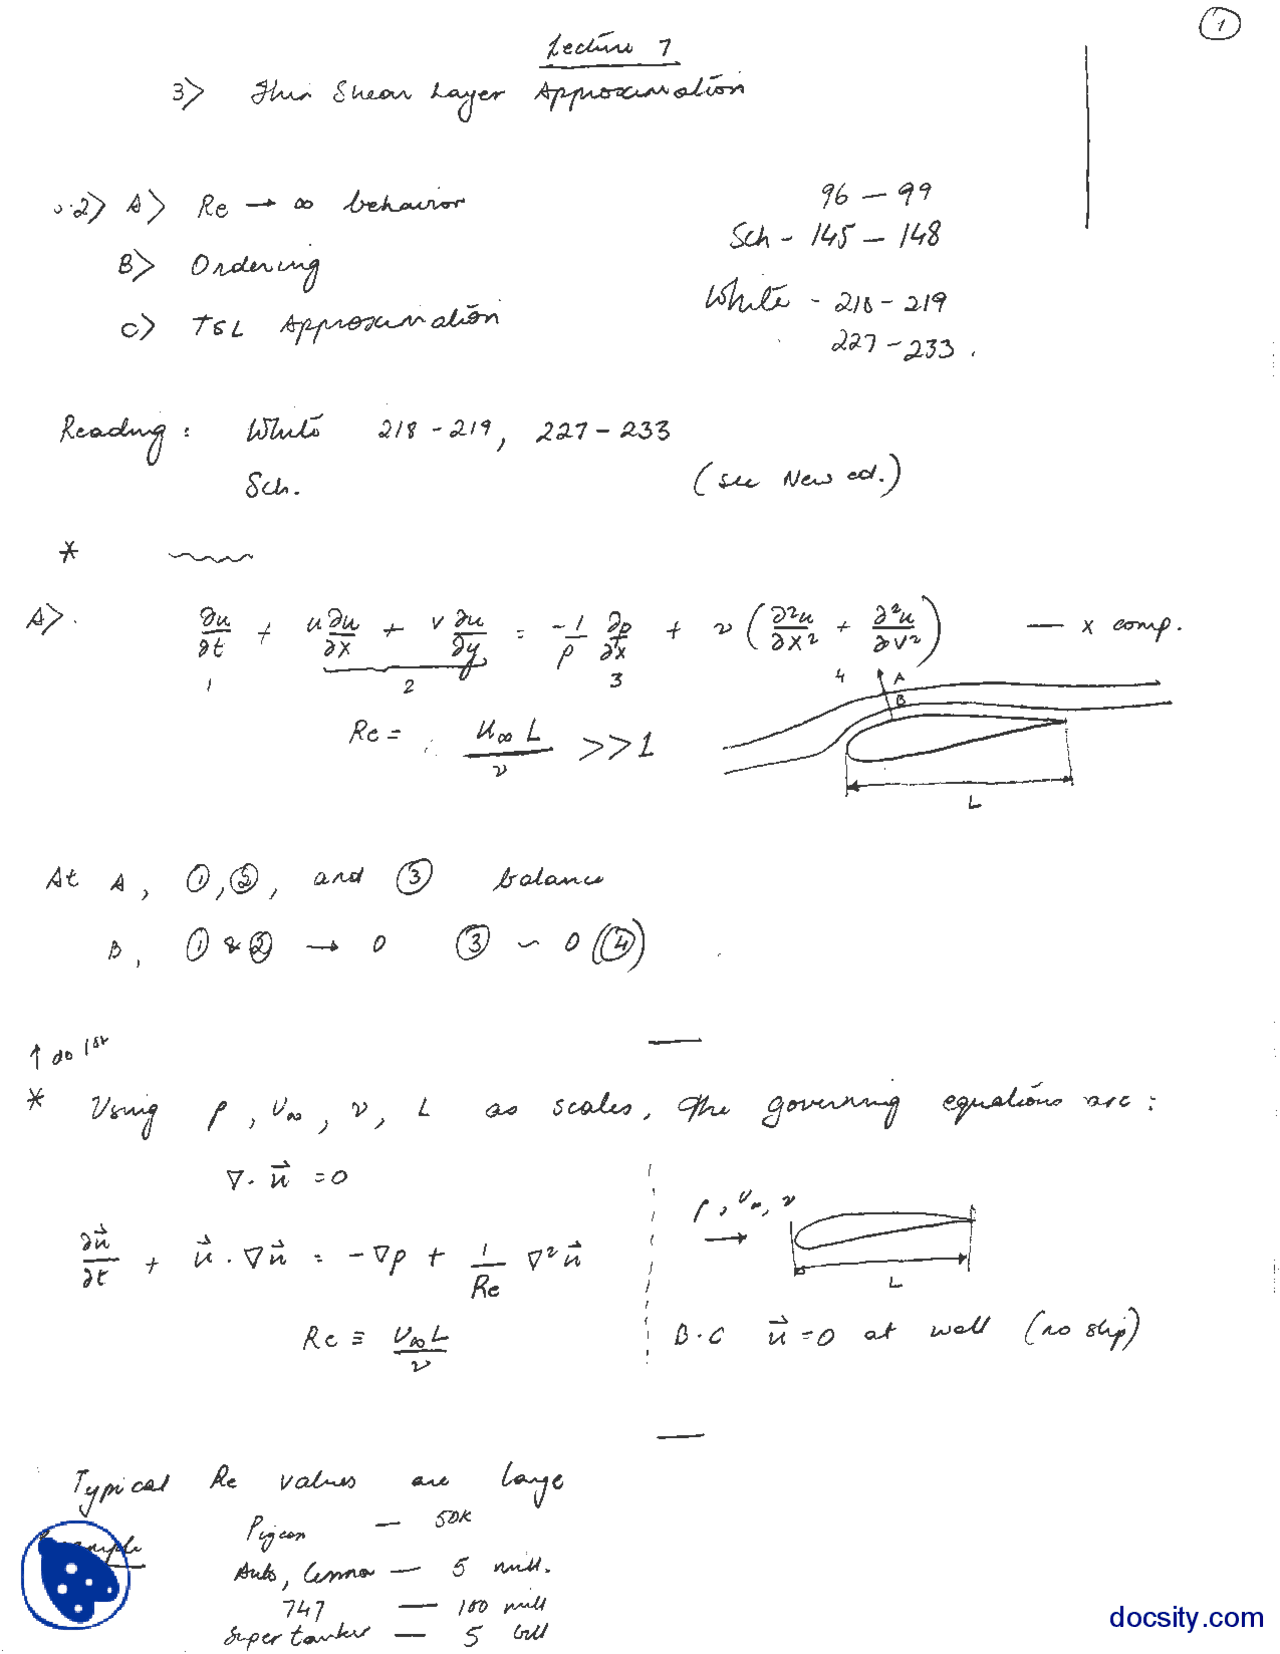 1
Lecture 7
3> Thin Shear Layer Approximation
2> A> Re → ∞ behavior
96 – 99
Sch – 145 – 148
B> Ordering
White – 218 – 219
C> TSL Approximation
227 – 233.
Reading: White 218 – 219, 227 – 233
Sch. (see New ed.)
*
A>. ∂u/∂t + u ∂u/∂x + v ∂u/∂y = -1/ρ ∂p/∂x + ν (∂²u/∂x² + ∂²u/∂v²) — x comp.
1 2 3 4
A
B
Re = u∞ L / ν >> 1
L
At A, ①, ②, and ③ balance
B, ① & ② → 0 ③ ~ O(④)
↑ do 1st
* Using ρ, U∞, ν, L as scales, the governing equations are:
∇·u⃗ = 0
ρ, U∞, ν
∂u⃗/∂t + u⃗·∇u⃗ = -∇p + 1/Re ∇²u⃗
L
Re ≡ U∞L / ν
B.C u⃗ = 0 at wall (no slip)
Typical Re values are large
Example
Pigeon — 50K
Auto, Cessna — 5 mill.
747 — 100 mill
Supertanker — 5 bill
docsity.com